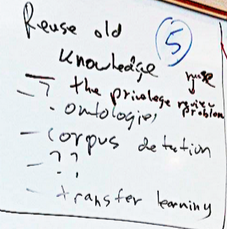 Reuse old
5
Knowledge
- ? the privilege review problem
- ontologies
- corpus detection
- ??
- transfer learning